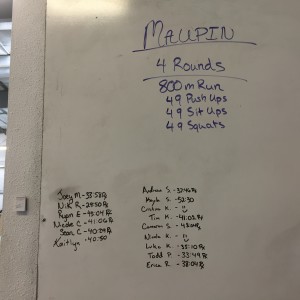 MAUPIN
4 Rounds
800m Run
49 Push Ups
49 Sit Ups
49 Squats
Joey M - 33:58 Rx
Nik R - 28:50 Rx
Ryan E - 45:04 Rx
Nicole C - 41:06 Rx
Sean C - 40:39 Rx
Kaitlyn - 40:50
Andrew S. - 37:46 Rx
Kayla S - 52:30
K -
Tim K - 41:02 Rx
Cameron S. - 48:04 Rx
Nicole K -
Luke K - 33:10 Rx
Todd P. - 33:49 Rx
Erica R - 38:04 Rx